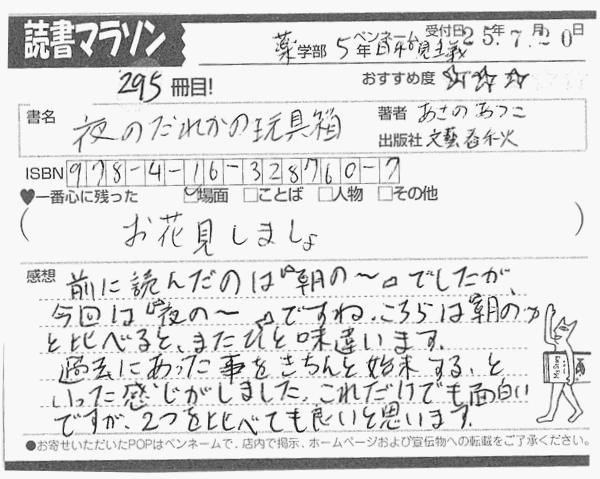 読書マラソン
薬学部 5年 ペンネーム 日和見主義 受付日 25年7月20日
295冊目!
おすすめ度 ☆☆☆
書名 夜のだれかの玩具箱
著者 あさのあつこ
出版社 文藝春秋
ISBN 978-4-16-328760-7
♥一番心に残った ☑場面 □ことば □人物 □その他
(お花見しましょ)
感想 前に読んだのは『朝の〜』でしたが、
今回は『夜の〜』ですね。こちらは『朝の〜』
と比べると、またひと味違います。
過去にあった事をきちんと始末する、と
いった感じがしました。これだけでも面白い
ですが、2つを比べても良いと思います。
●お寄せいただいたPOPはペンネームで、店内で掲示、ホームページおよび宣伝物への転載をご了承ください。